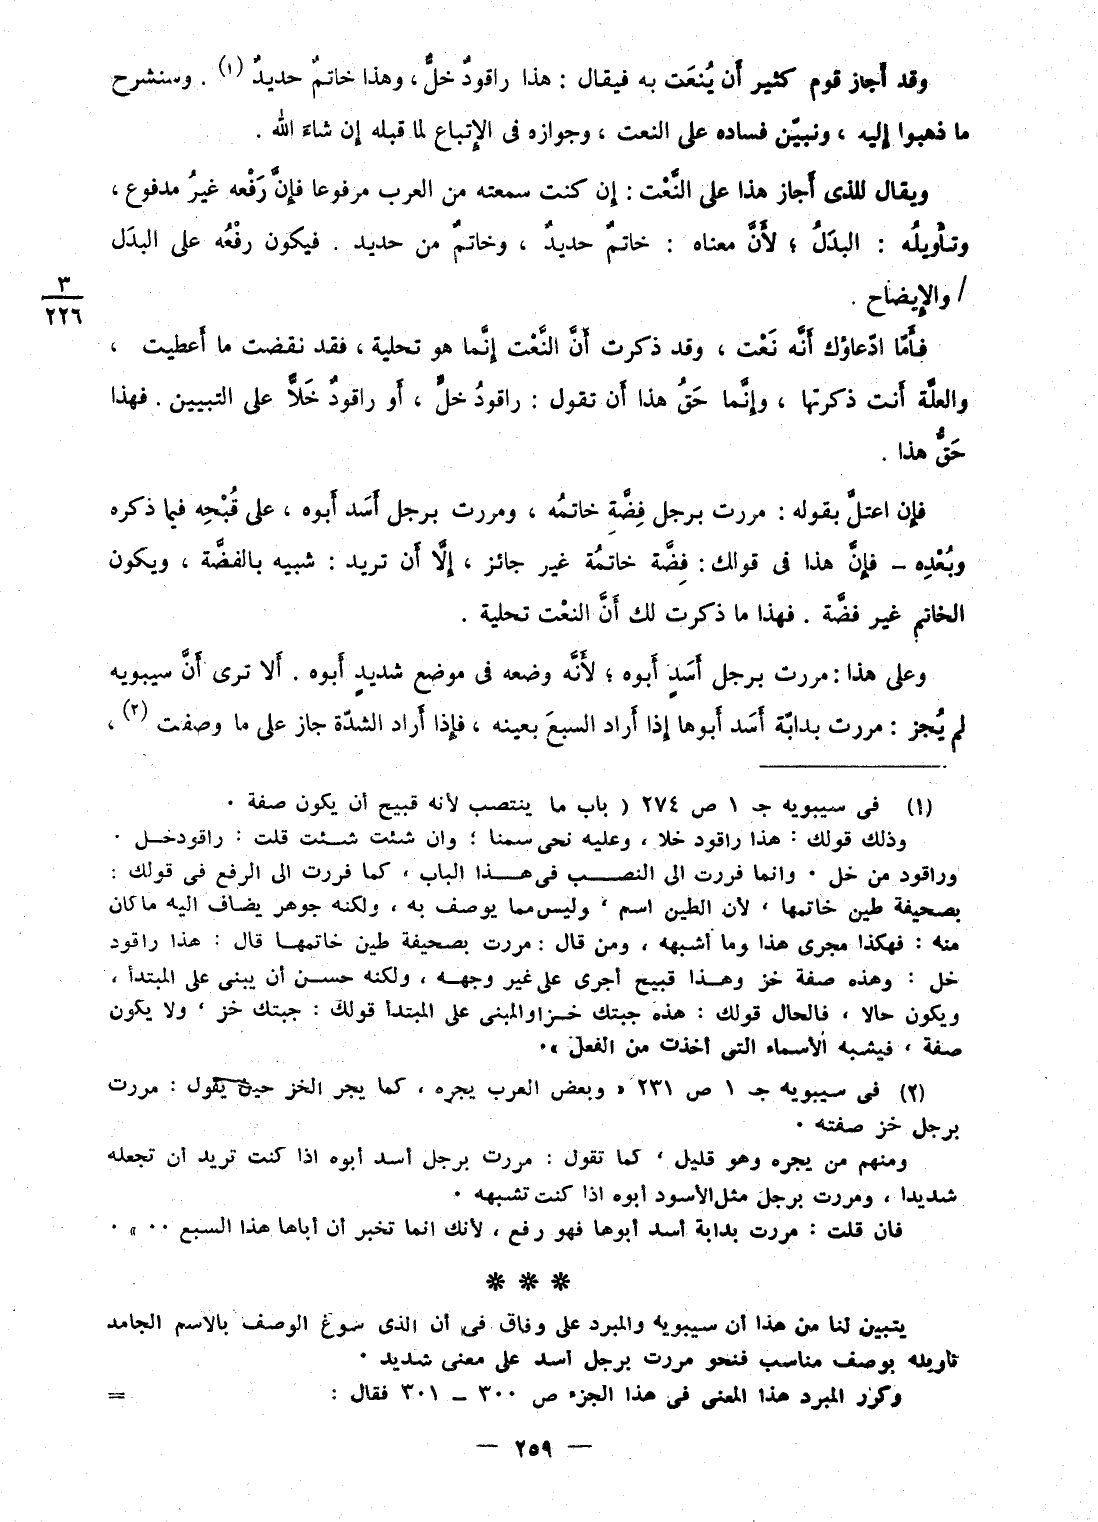 وقد أَجاز قوم كثير أَن يُنعَت به فيقال : هذا راقودٌ خلٌّ ، وهذا خاتمٌ حديدٌ (١) . وسنشرح
ما ذهبوا إليه ، ونبيّن فساده على النعت ، وجوازه فى الإتباع لما قبله إن شاءَ الله .
ويقال للذى أَجاز هذا على النَّعْت : إن كنت سمعته من العرب مرفوعا فإنَّ رَفْعه غيرُ مدفوع ،
وتأويلُه : البدَلُ ؛ لأَنَّ معناه : خاتمٌ حديدٌ ، وخاتمٌ من حديد . فيكون رفْعُه على البدَل
/ والإيضاح .
٣
٢٢٦
فأَمّا ادّعاؤك أَنَّه نَعْت ، وقد ذكرت أَنَّ النَّعْت إنَّما هو تحلية ، فقد نقضت ما أَعطيت ،
والعلَّة أَنت ذكرتها ، وإنَّما حَقُّ هذا أَن تقول : راقودُ خلٍّ ، أَو راقودٌ خَلاًّ على التبيين . فهذا
حَقُّ هذا .
فإن اعتلَّ بقوله : مررت برجل فِضَّةٍ خاتمُه ، ومررت برجل أَسَد أَبوه ، على قُبْحِه فيما ذكره
وبُعْدِه – فإنَّ هذا فى قولك : فِضَّة خاتمُة غير جائز ، إلَّا أَن تريد : شبيه بالفضَّة ، ويكون
الخاتم غير فضَّة . فهذا ما ذكرت لك أَنَّ النعْت تحلية .
وعلى هذا : مررت برجل أَسَدٍ أَبوه ؛ لأَنَّه وضعه فى موضع شديدٍ أَبوه . أَلا ترى أَنَّ سيبويه
لم يُجز : مررت بدابّة أَسَد أَبوها إذا أَراد السبعَ بعينه ، فإذا أَراد الشدّة جاز على ما وصفت (٢) ،
(١) فى سيبويه جـ ١ ص ٢٧٤ ( باب ما ينتصب لأنه قبيح أن يكون صفة .
وذلك قولك : هذا راقود خلا ، وعليه نحى سمنا ؛ وان شئت شئت قلت : راقود خل .
وراقود من خل . وانما فررت الى النصب فى هذا الباب ، كما فررت الى الرفع فى قولك :
بصحيفة طين خاتمها ، لأن الطين اسم ، وليس مما يوصف به ، ولكنه جوهر يضاف اليه ما كان
منه : فهكذا مجرى هذا وما أشبهه ، ومن قال : مررت بصحيفة طين خاتمها قال : هذا راقود
خل : وهذه صفة خز وهذا قبيح أجرى على غير وجهه ، ولكنه حسن أن يبنى على المبتدأ ،
ويكون حالا ، فالحال قولك : هذه جبتك خزا والمبنى على المبتدأ قولك : جبتك خز ، ولا يكون
صفة ، فيشبه الأسماء التى أخذت من الفعل » .
(٢) فى سيبويه جـ ١ ص ٢٣١ « وبعض العرب يجره ، كما يجر الخز حين يقول : مررت
برجل خز صفته .
ومنهم من يجره وهو قليل ، كما تقول : مررت برجل أسد أبوه اذا كنت تريد أن تجعله
شديدا ، ومررت برجل مثل الأسود أبوه اذا كنت تشبهه .
فان قلت : مررت بدابة أسد أبوها فهو رفع ، لأنك انما تخبر أن أباها هذا السبع .. » .
* * *
يتبين لنا من هذا أن سيبويه والمبرد على وفاق فى أن الذى سوغ الوصف بالاسم الجامد
تاويله بوصف مناسب فنحو مررت برجل أسد على معنى شديد .
وكرر المبرد هذا المعنى فى هذا الجزء ص ٣٠٠ – ٣٠١ فقال :
=
— ٢٥٩ —